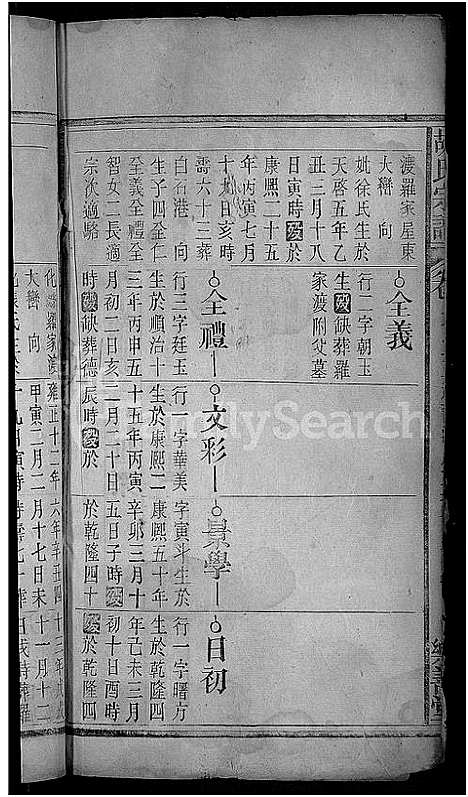 胡氏宗譜
渡羅家屋東
大巒向
妣徐氏生於
天啓五年乙
丑三月十八
日寅時歿於
康熙二十五
年丙寅七月
十九日亥時
壽六十三葬
白石港 向
生子四全仁
至義全禮全
智女二長適
宗次適駱
全義
行一字朝玉
生歿缺葬羅
家渡附父墓
全禮
行三字廷玉
生於順治十
三年丙申五
月初二日亥
時歿缺葬德
文彩
行一字華美
生於康熙二
十五年丙寅
二月二十日
辰時歿於
景學
字寅斗生於
康熙五十年
辛卯三月十
五日子時歿
於乾隆四十
日初
行一字曙方
生於乾隆四
年己未三月
初十日酉時
歿於乾隆四
大巒 向
雍正十二年
甲寅二月
FamilySearch